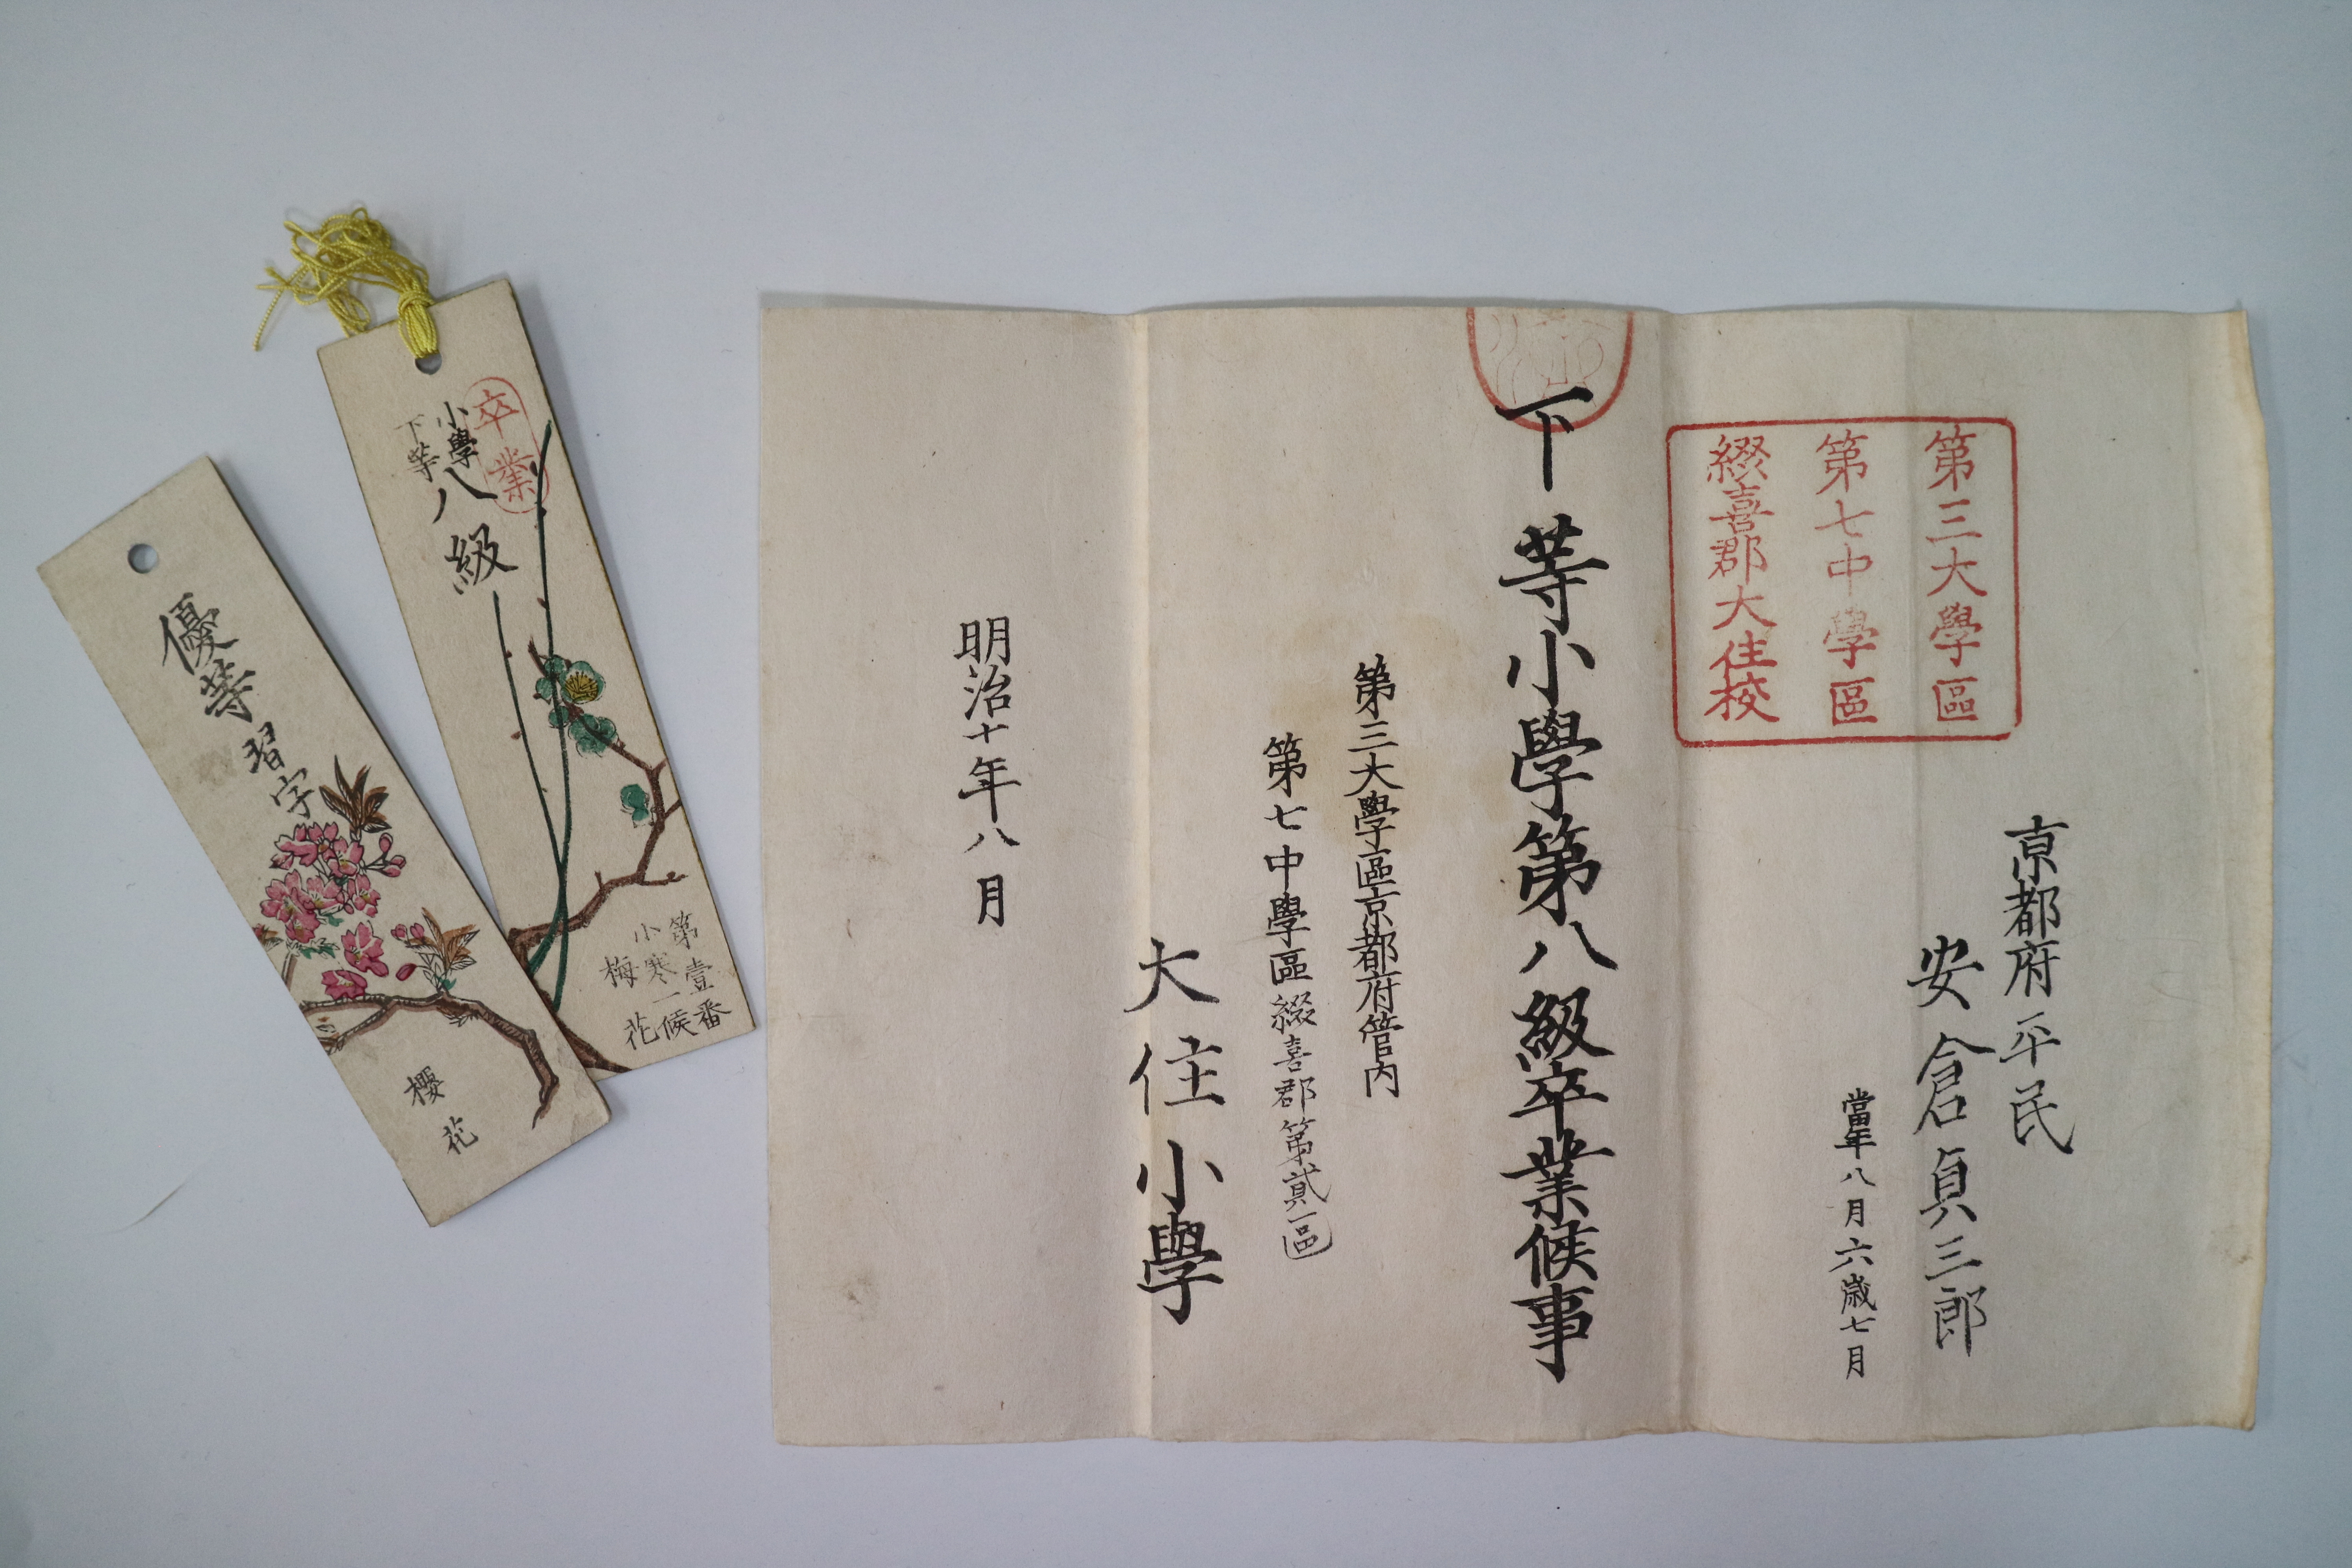 第三大學區
第七中學區
綴喜郡大住校
京都府平民
安倉貞三郎
當年八月六歳七月
下等小學第八級卒業候事
第三大學區京都府管内
第七中學區綴喜郡第貳區
大住小學
明治十年八月
卒業
小學
下等
八級
第壹番
小寒一候
梅花
優等
習字
櫻花